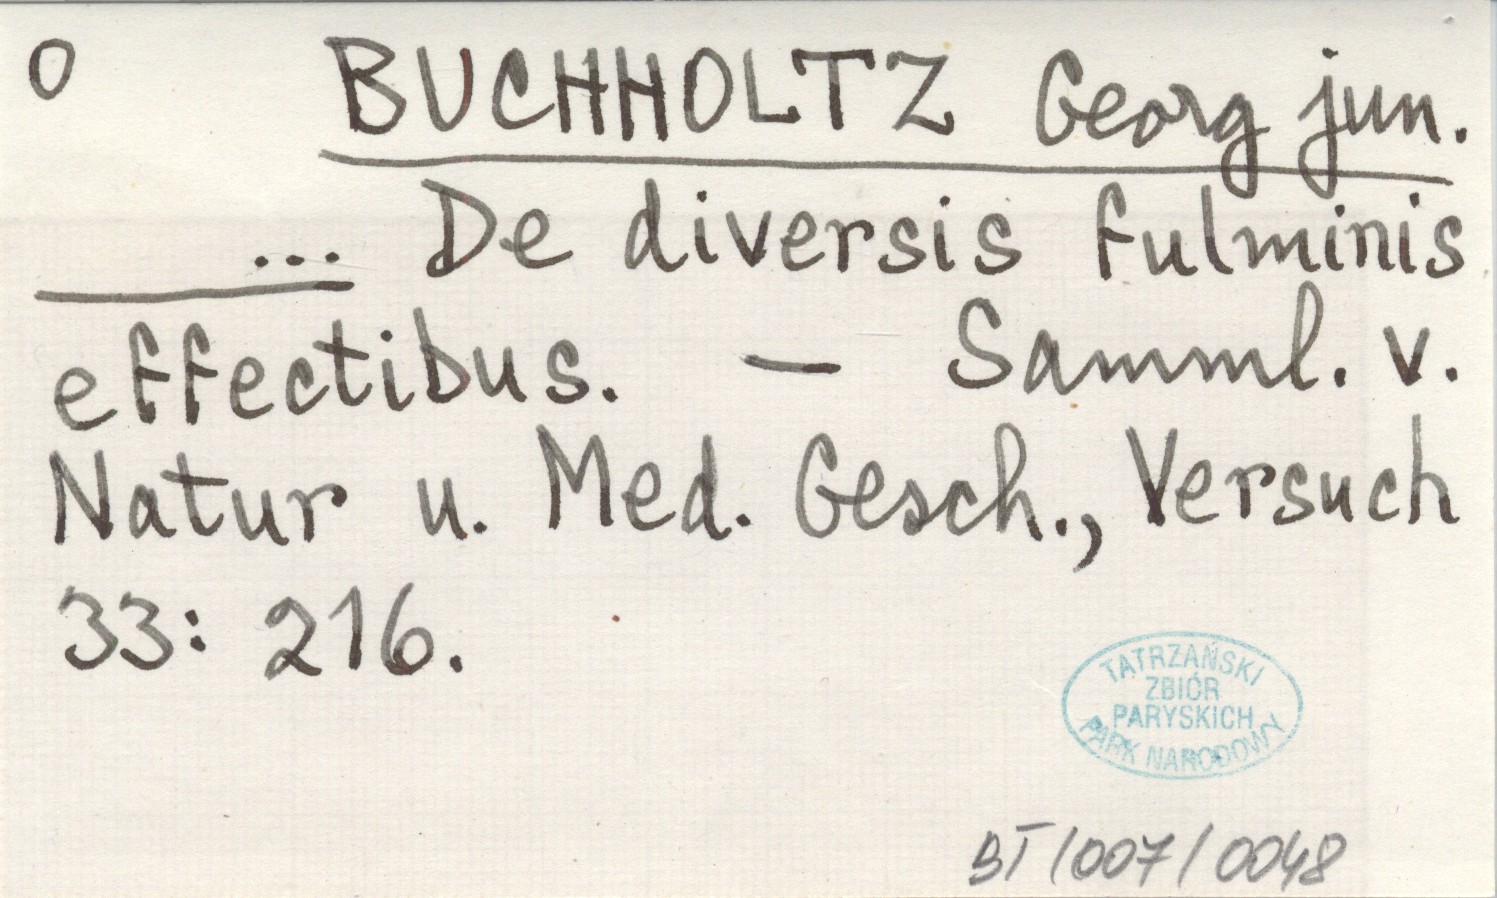 O BUCHHOLTZ Georg jun.
... De diversis fulminis
effectibus. — Samml. v.
Natur u. Med. Gesch., Versuch
33: 216.
TATRZAŃSKI
ZBIÓR
PARYSKICH
PARK NARODOWY
BT/007/0048